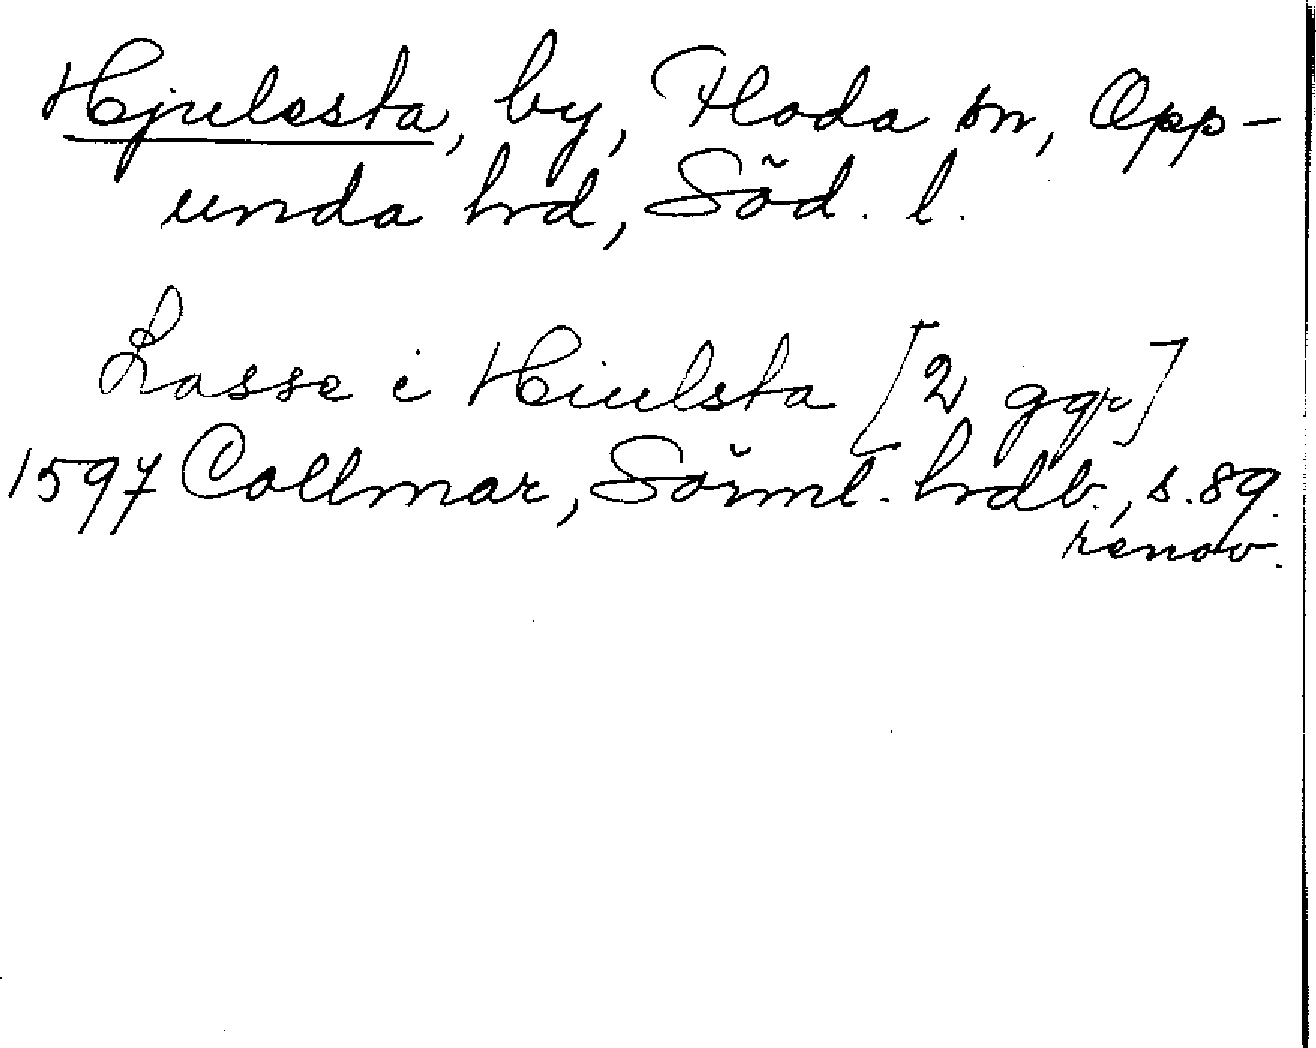 Hjulesta, by, Floda sn, Opp-
unda hrd, Söd. l.
Lasse i Hiulsta [2 ggr]
1597 Collmar, Sörml. hrdb., s. 89.
renov.